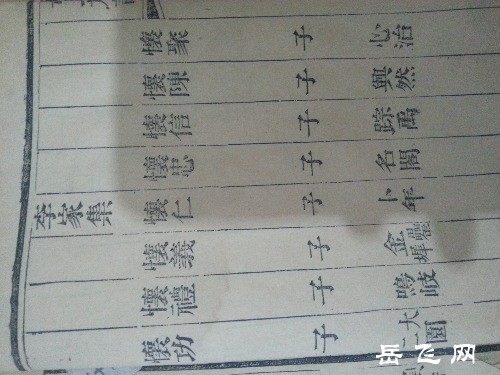 懷聚 子 心治
懷陳 子 興然
懷信 子 踪禹
懷忠 子 名閣
李家集 懷仁 子 卜年
懷義 子 金
懷禮 子 鳴岐
懷功 子 大
岳飞网